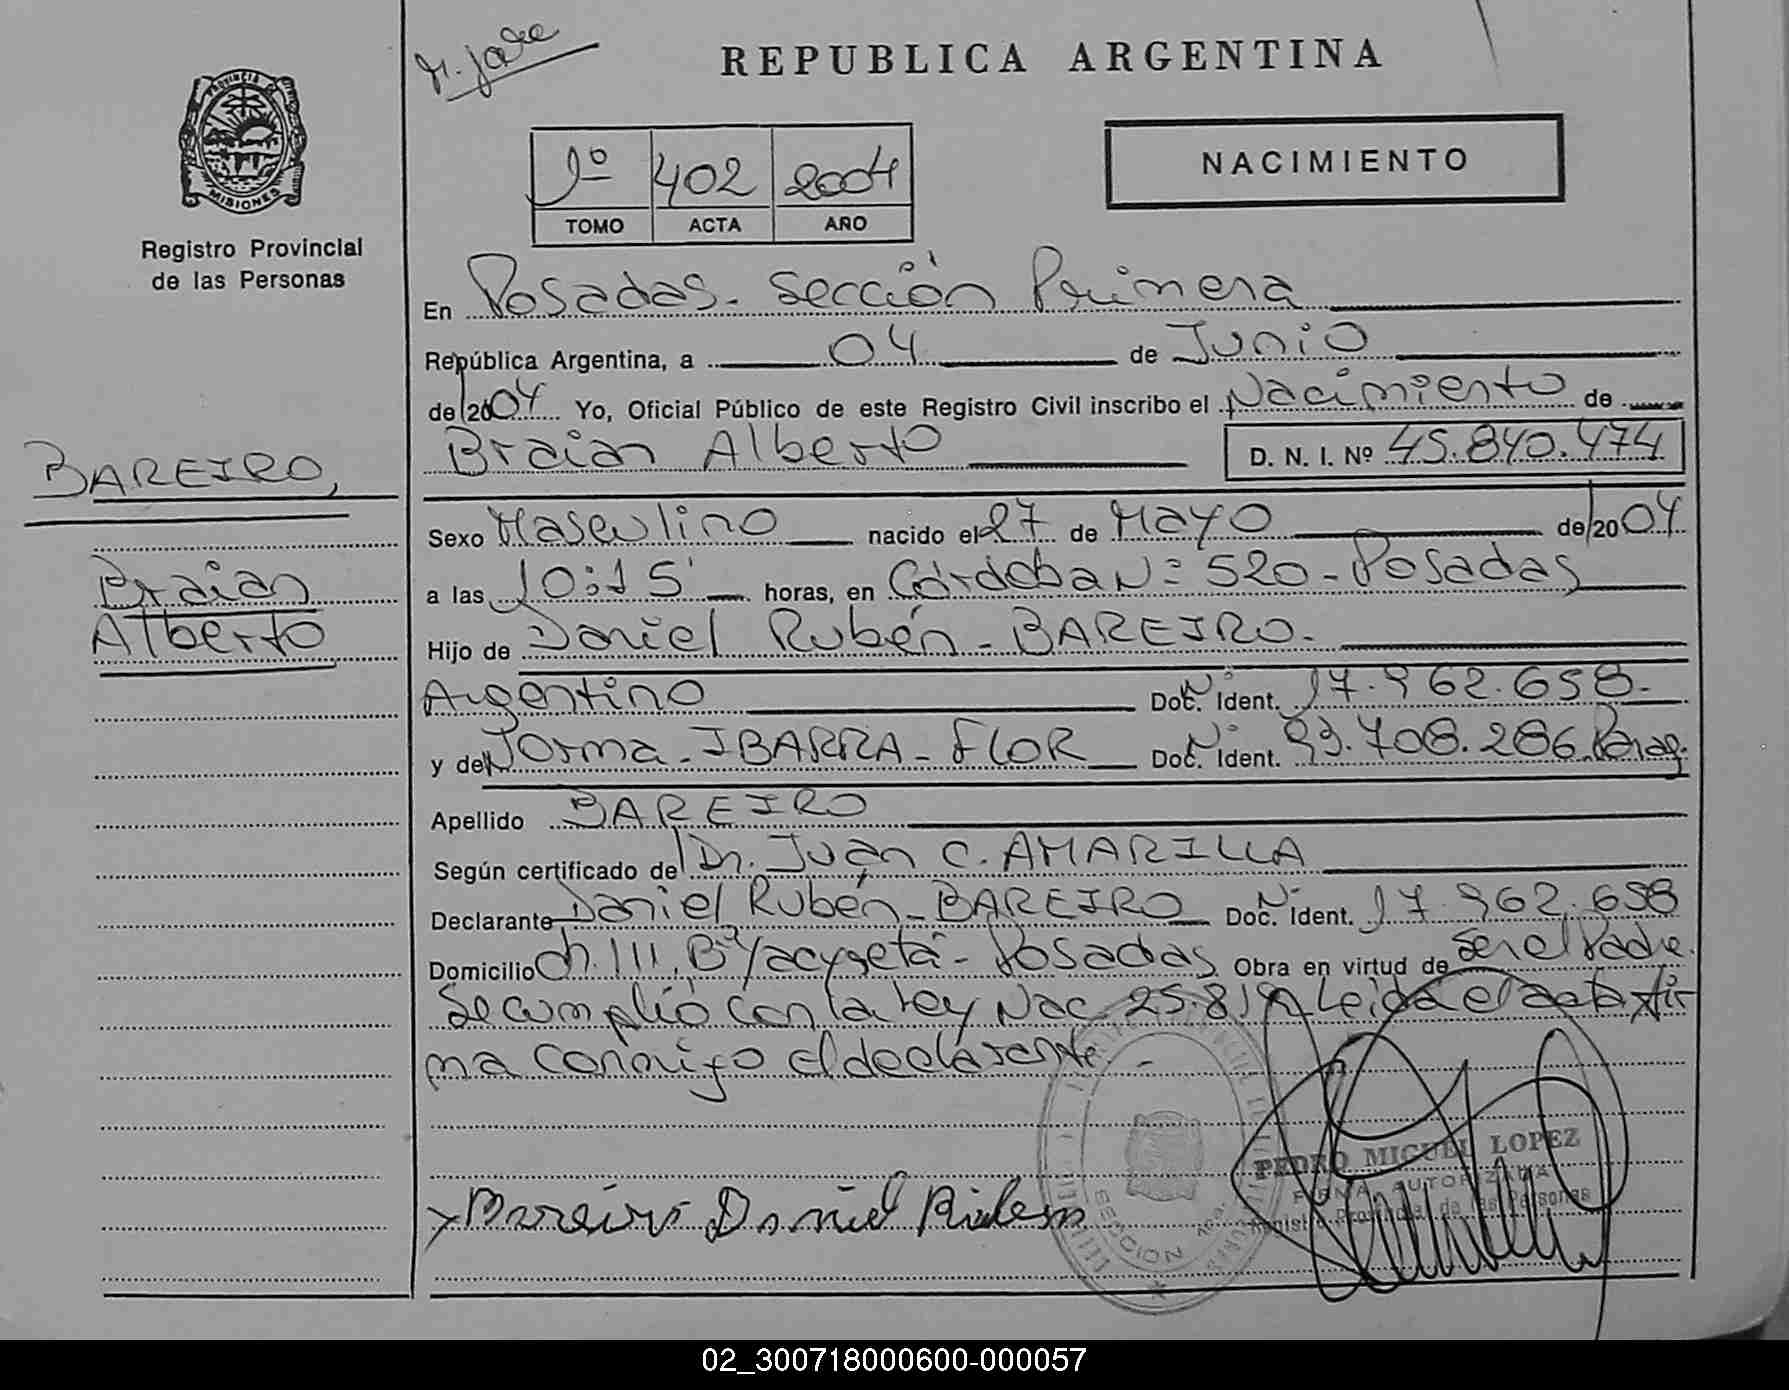 REPUBLICA ARGENTINA
PROVINCIA DE
MISIONES
Registro Provincial
de las Personas
1º 402 2004
TOMO ACTA AÑO
NACIMIENTO
En Posadas - Sección Primera
República Argentina, a 04 de Junio
de 2004 Yo, Oficial Público de este Registro Civil inscribo el Nacimiento de
Braian Alberto D. N. I. Nº 45.840.474
BAREIRO,
Braian
Alberto
Sexo Masculino nacido el 27 de Mayo de 2004
a las 10:15' horas, en Córdoba Nº 520 - Posadas
Hijo de Daniel Rubén - BAREIRO.
Argentino Doc. Nº Ident. 17.962.658.
y de Norma - IBARRA - FLOR Doc. Nº Ident. 93.708.286 Parag.
Apellido BAREIRO
Según certificado de Dr. Juan C. AMARILLA
Declarante Daniel Rubén - BAREIRO Doc. Nº Ident. 17.962.658
Domicilio Ch. 111, Bº Yacyretá - Posadas Obra en virtud de Ser el Padre.
Se cumplió con la Ley Nac 25.819 Leida el acta fir
ma conmigo el declarante. -
PEDRO MIGUEL LOPEZ
FIRMA AUTORIZADA
Registro Provincial de las Personas
x Bareiro Daniel Ruben
SECCION 1ra.
02_300718000600-000057